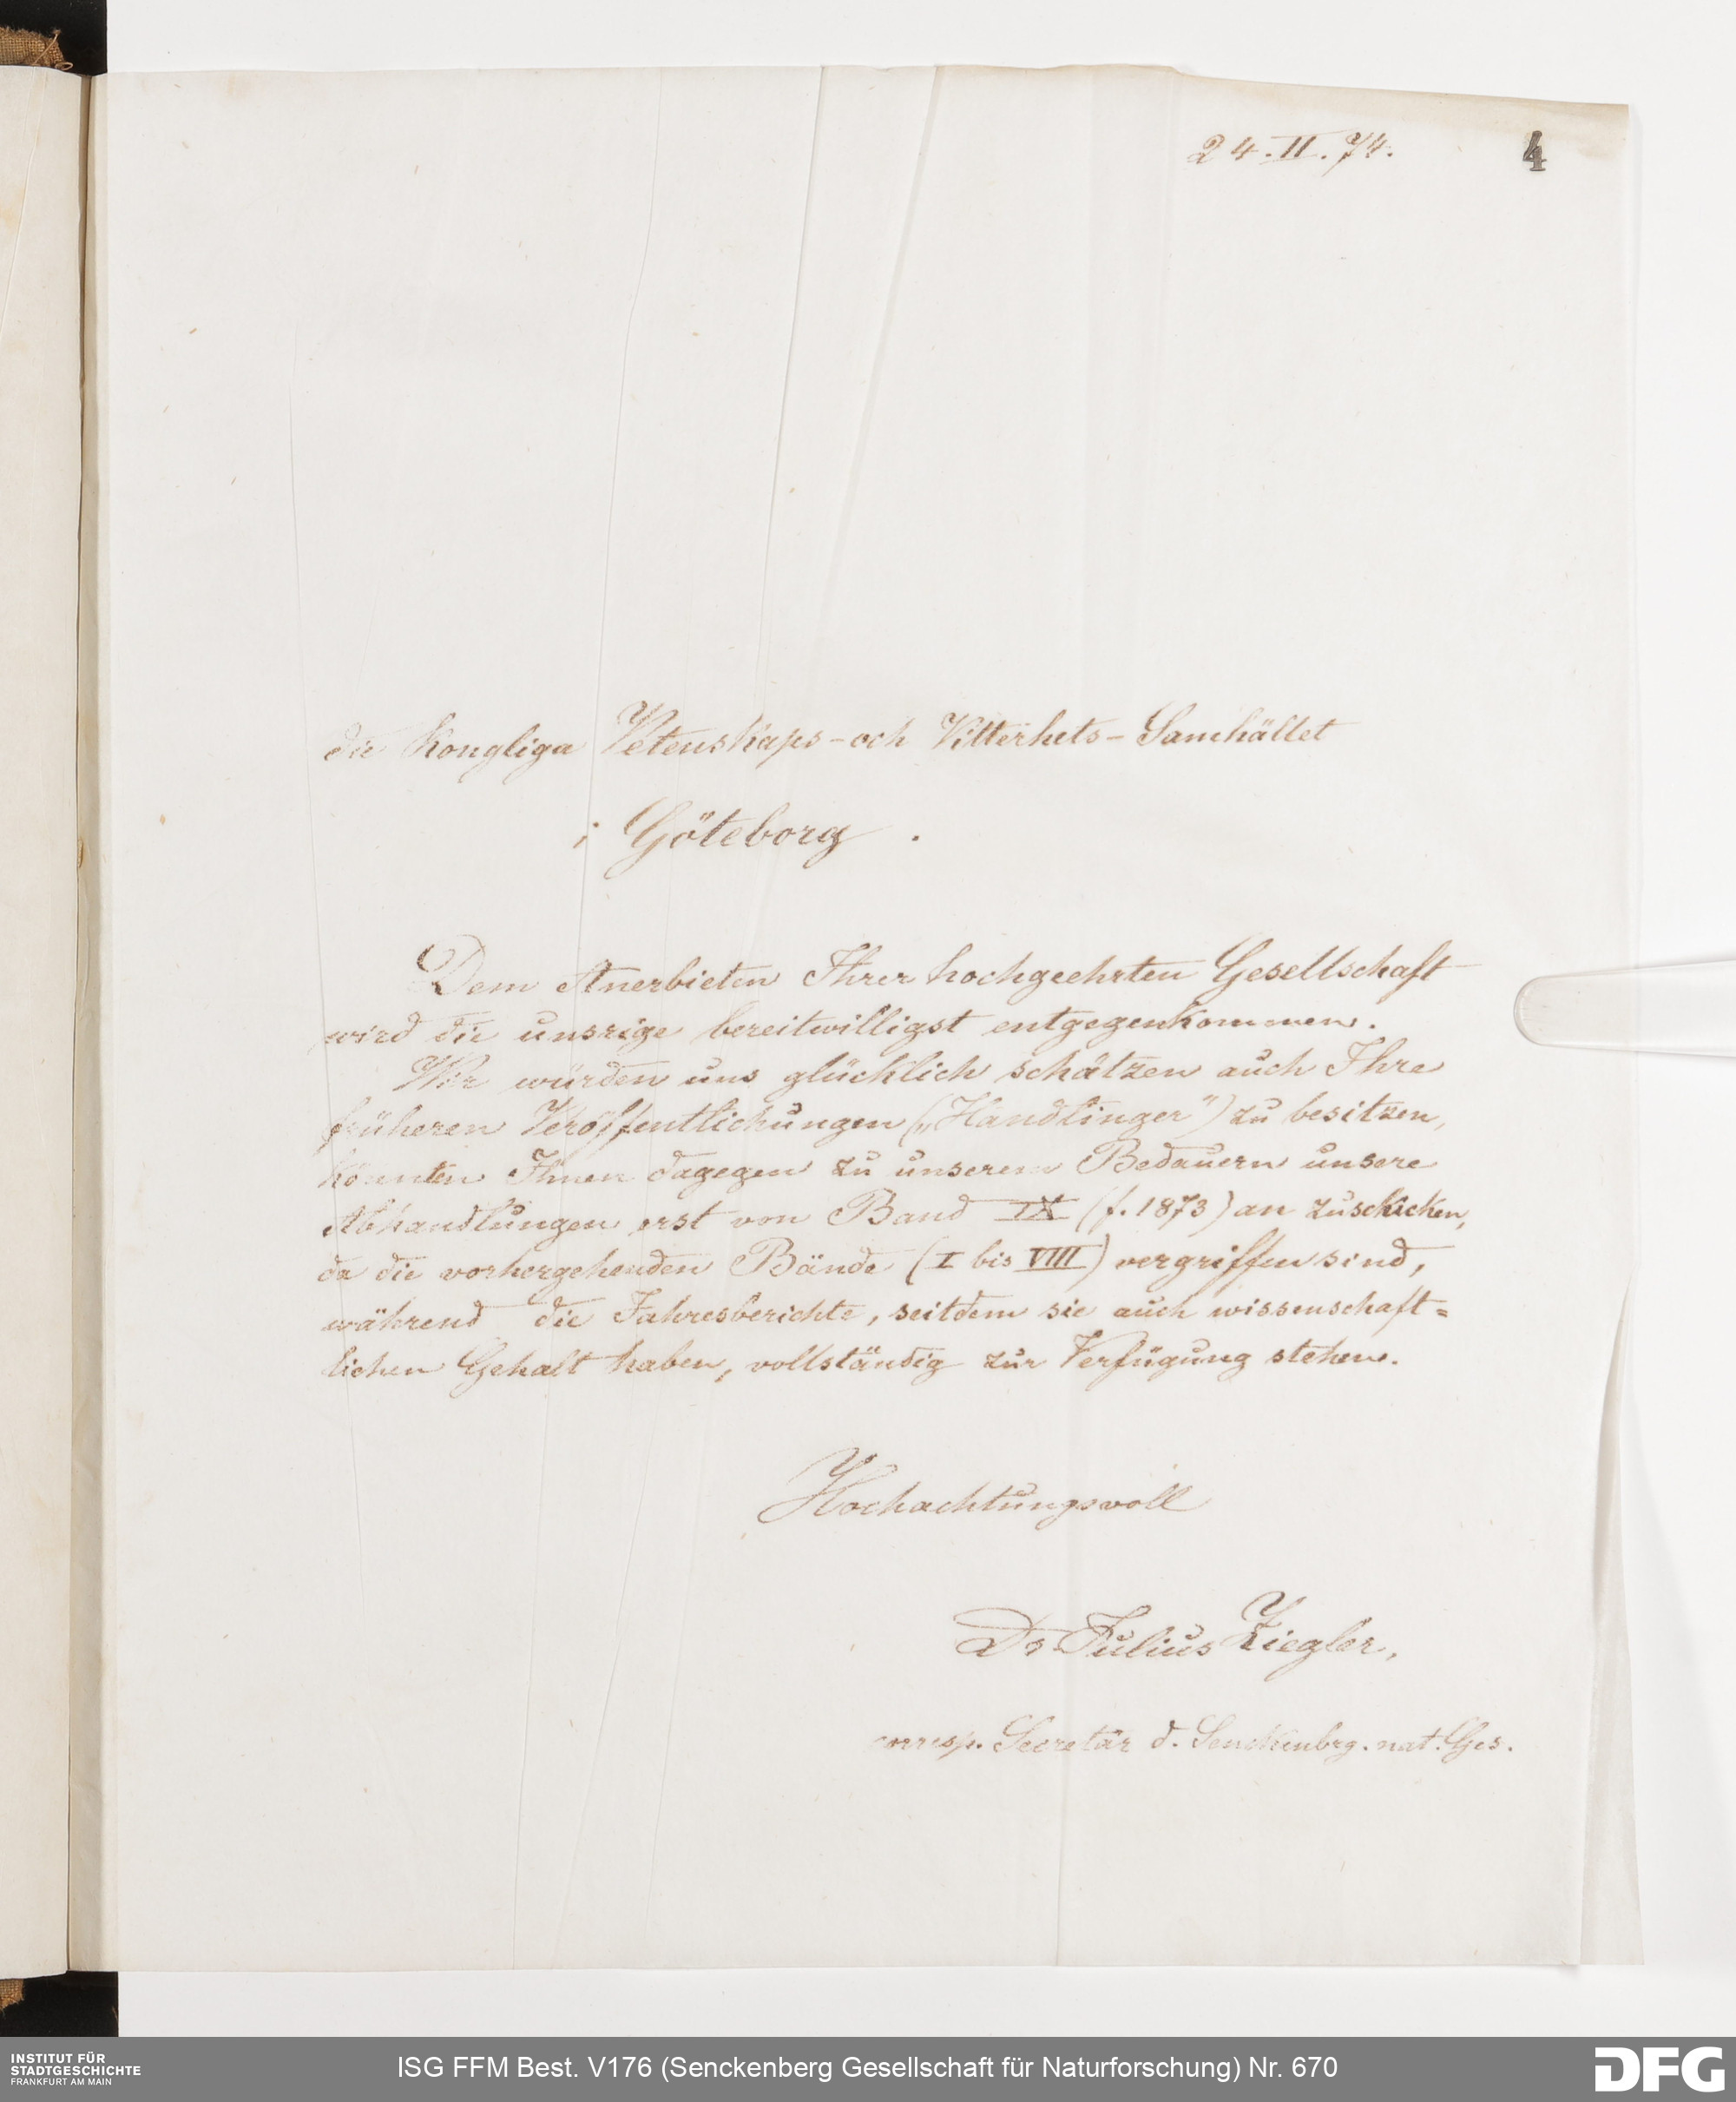 24.II.74.
4
die Kongliga Vetenskaps-och Vitterhets-Samhället
i Göteborg.
Dem Anerbieten Ihrer hochgeehrten Gesellschaft
wird die unsrige bereitwilligst entgegenkommen.
Wir würden uns glücklich schätzen auch Ihre
früheren Veröffentlichungen („Handlinger") zu besitzen,
könnten Ihnen dagegen zu unserem Bedauern unsere
Abhandlungen erst von Band IX (f. 1873) an zuschicken,
da die vorhergehenden Bände (I bis VIII) vergriffen sind,
während die Jahresberichte, seitdem sie auch wissenschaft=
lichen Gehalt haben, vollständig zur Verfügung stehen.
Hochachtungsvoll
Dr Julius Ziegler,
corresp. Secretär d. Senckenbrg. nat. Ges.
INSTITUT FÜR
STADTGESCHICHTE
FRANKFURT AM MAIN
ISG FFM Best. V176 (Senckenberg Gesellschaft für Naturforschung) Nr. 670
DFG